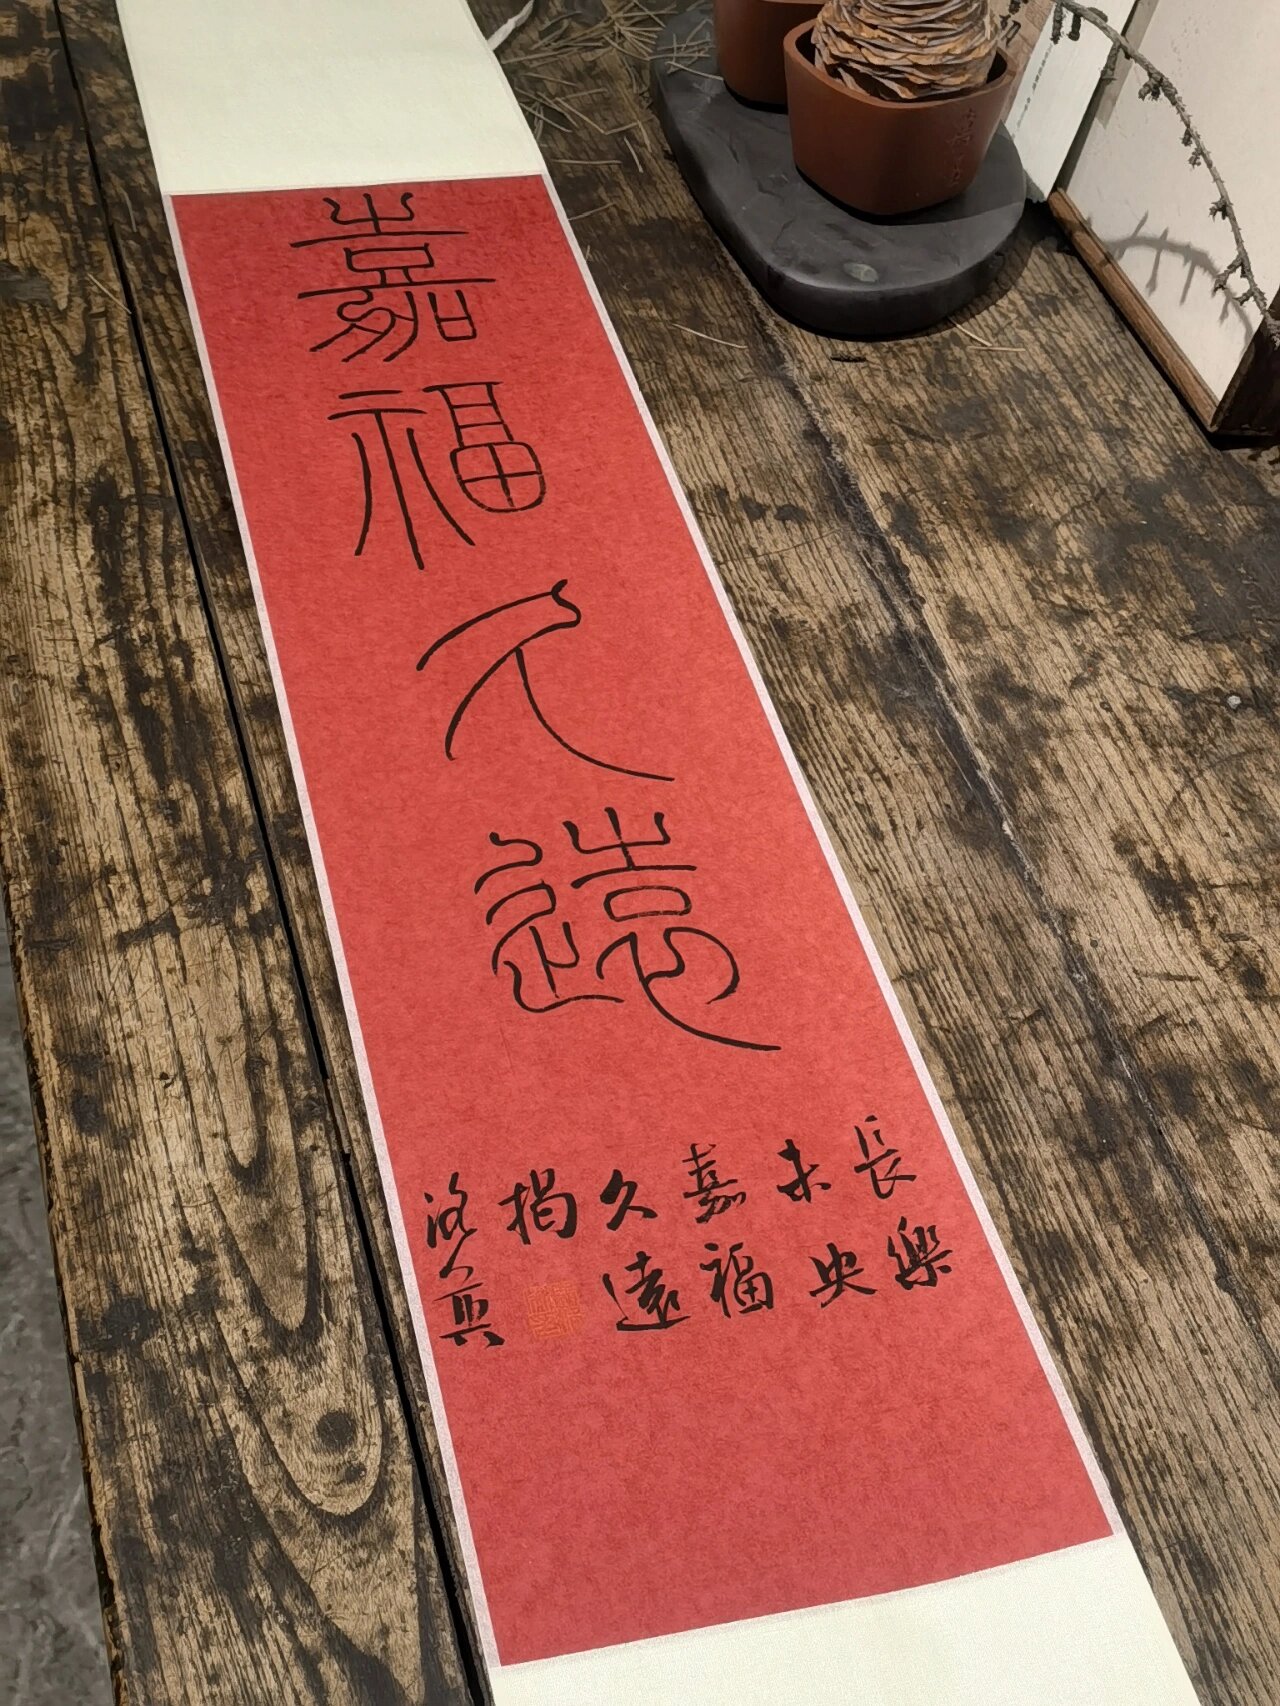 嘉福久遠
長樂
未央
嘉福
久遠
揭